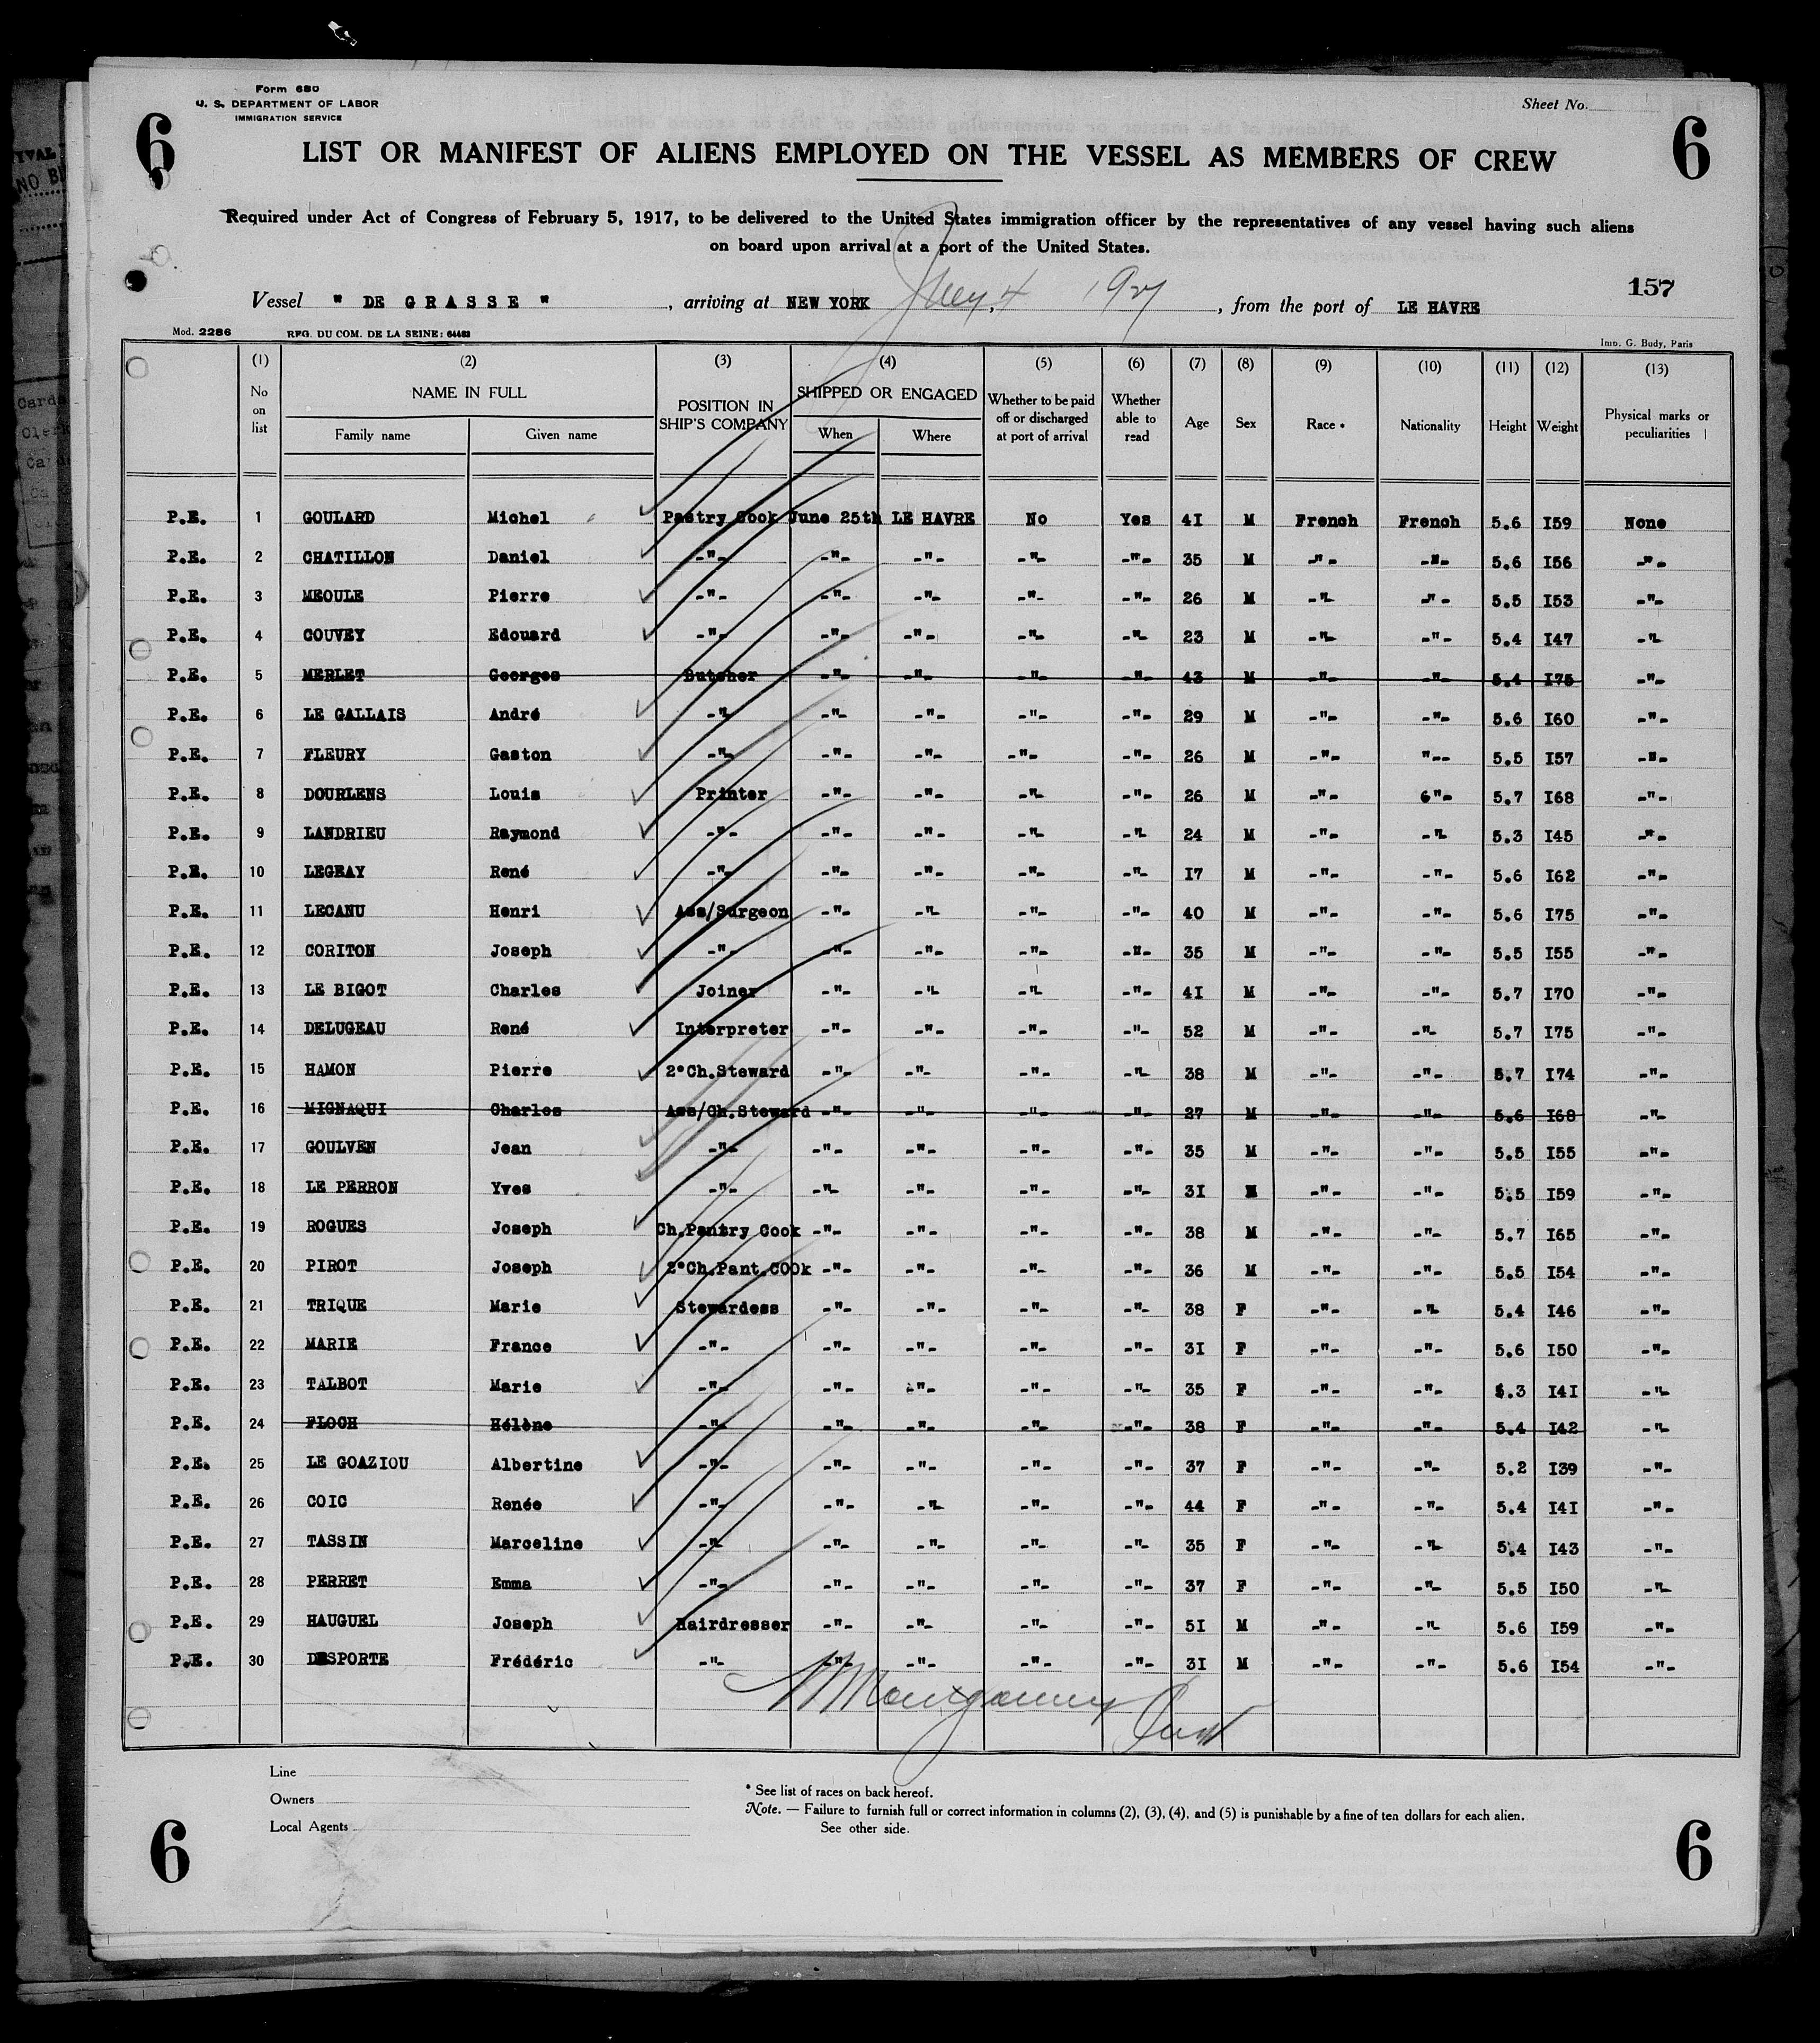 Form 680
U. S. DEPARTMENT OF LABOR
IMMIGRATION SERVICE
Sheet No.
6 6
LIST OR MANIFEST OF ALIENS EMPLOYED ON THE VESSEL AS MEMBERS OF CREW
Required under Act of Congress of February 5, 1917, to be delivered to the United States immigration officer by the representatives of any vessel having such aliens
on board upon arrival at a port of the United States.
157
Vessel " DE GRASSE " , arriving at NEW YORK July, 4 1927 , from the port of LE HAVRE
Mod. 2286 REG. DU COM. DE LA SEINE: 64483 Imp. G. Budy, Paris
(1) (2) (3) (4) (5) (6) (7) (8) (9) (10) (11) (12) (13)
No on list NAME IN FULL Family name Given name POSITION IN SHIP'S COMPANY SHIPPED OR ENGAGED When Where Whether to be paid off or discharged at port of arrival Whether able to read Age Sex Race * Nationality Height Weight Physical marks or peculiarities
P.E. 1 GOULARD Michel Pastry Cook June 25th LE HAVRE No Yes 4I M French French 5.6 I59 None
P.E. 2 CHATILLON Daniel -"- -"- -"- -"- -"- 35 M -"- -"- 5.6 I56 -"-
P.E. 3 MEOULE Pierre -"- -"- -"- -"- -"- 26 M -"- -"- 5.5 I53 -"-
P.E. 4 COUVEY Edouard -"- -"- -"- -"- -"- 23 M -"- -"- 5.4 I47 -"-
P.E. 5 MERLET Georges Butcher -"- -"- -"- -"- 43 M -"- -"- 5.4 I75 -"-
P.E. 6 LE GALLAIS André -"- -"- -"- -"- -"- 29 M -"- -"- 5.6 I60 -"-
P.E. 7 FLEURY Gaston -"- -"- -"- -"- -"- 26 M -"- "-- 5.5 I57 -"-
P.E. 8 DOURLENS Louis Printer -"- -"- -"- -"- 26 M -"- 6"- 5.7 I68 -"-
P.E. 9 LANDRIEU Raymond -"- -"- -"- -"- -"- 24 M -"- -"- 5.3 I45 -"-
P.E. 10 LEGEAY René -"- -"- -"- -"- -"- I7 M -"- -"- 5.6 I62 -"-
P.E. 11 LECANU Henri Ass/Surgeon -"- -"- -"- -"- 40 M -"- -"- 5.6 I75 -"-
P.E. 12 CORITON Joseph -"- -"- -"- -"- -"- 35 M -"- -"- 5.5 I55 -"-
P.E. 13 LE BIGOT Charles Joiner -"- -"- -"- -"- 4I M -"- -"- 5.7 I70 -"-
P.E. 14 DELUGEAU René Interpreter -"- -"- -"- -"- 52 M -"- -"- 5.7 I75 -"-
P.E. 15 HAMON Pierre 2°Ch.Steward -"- -"- -"- -"- 38 M -"- -"- 5.7 I74 -"-
P.E. 16 MIGNAQUI Charles Ass/Ch.Steward -"- -"- -"- -"- 27 M -"- -"- 5.6 I68 -"-
P.E. 17 GOULVEN Jean -"- -"- -"- -"- -"- 35 M -"- -"- 5.5 I55 -"-
P.E. 18 LE PERRON Yves -"- -"- -"- -"- -"- 3I M -"- -"- 5.5 I59 -"-
P.E. 19 ROGUES Joseph Ch.Pantry Cook -"- -"- -"- -"- 38 M -"- -"- 5.7 I65 -"-
P.E. 20 PIROT Joseph 2°Ch.Pant.COOk -"- -"- -"- -"- 36 M -"- -"- 5.5 I54 -"-
P.E. 21 TRIQUE Marie Stewardess -"- -"- -"- -"- 38 F -"- -"- 5.4 I46 -"-
P.E. 22 MARIE France -"- -"- -"- -"- -"- 3I F -"- -"- 5.6 I50 -"-
P.E. 23 TALBOT Marie -"- -"- -"- -"- -"- 35 F -"- -"- 5.3 I4I -"-
P.E. 24 FLOCH Hélène -"- -"- -"- -"- -"- 38 F -"- -"- 5.4 I42 -"-
P.E. 25 LE GOAZIOU Albertine -"- -"- -"- -"- -"- 37 F -"- -"- 5.2 I39 -"-
P.E. 26 COIC Renée -"- -"- -"- -"- -"- 44 F -"- -"- 5.4 I4I -"-
P.E. 27 TASSIN Marceline -"- -"- -"- -"- -"- 35 F -"- -"- 5.4 I43 -"-
P.E. 28 PERRET Emma -"- -"- -"- -"- -"- 37 F -"- -"- 5.5 I50 -"-
P.E. 29 HAUGUEL Joseph Hairdresser -"- -"- -"- -"- 5I M -"- -"- 5.6 I59 -"-
P.E. 30 DESPORTE Frédéric -"- -"- -"- -"- -"- 3I M -"- -"- 5.6 I54 -"-
Line
Owners
Local Agents
* See list of races on back hereof.
Note. — Failure to furnish full or correct information in columns (2), (3), (4), and (5) is punishable by a fine of ten dollars for each alien.
See other side.
6 6